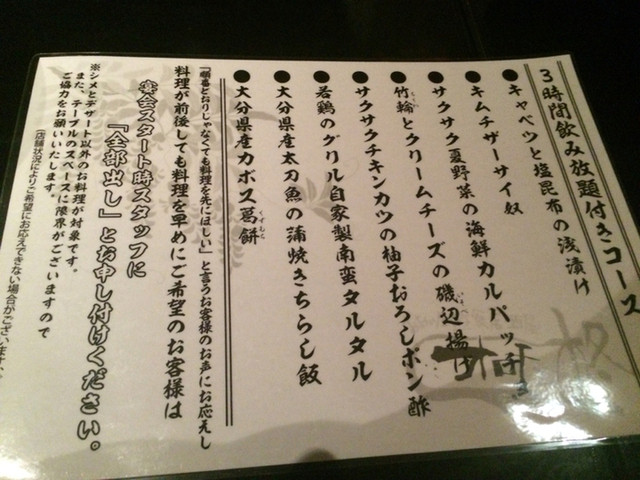 3時間飲み放題付きコース
●キャベツと塩昆布の浅漬け
●キムチザーサイ奴
●サクサク夏野菜の海鮮カルパッチョ
●竹輪とクリームチーズの磯辺揚げ
●サクサクチキンカツの柚子おろしポン酢
●若鶏のグリル自家製南蛮タルタル
●大分県産太刀魚の蒲焼きちらし飯
●大分県産カボス葛餅
「順番どおりじゃなくても料理を先にほしい」と言うお客様のお声にお応えし
料理が前後しても料理を早めにご希望のお客様は
宴会スタート時スタッフに
「全部出し」とお申し付けください。
※シメとデザート以外のお料理が対象です。
また、テーブルのスペースに限界がございますので
ご協力をお願いいたします。
(店舗状況によりご希望にお応えできない場合がござい